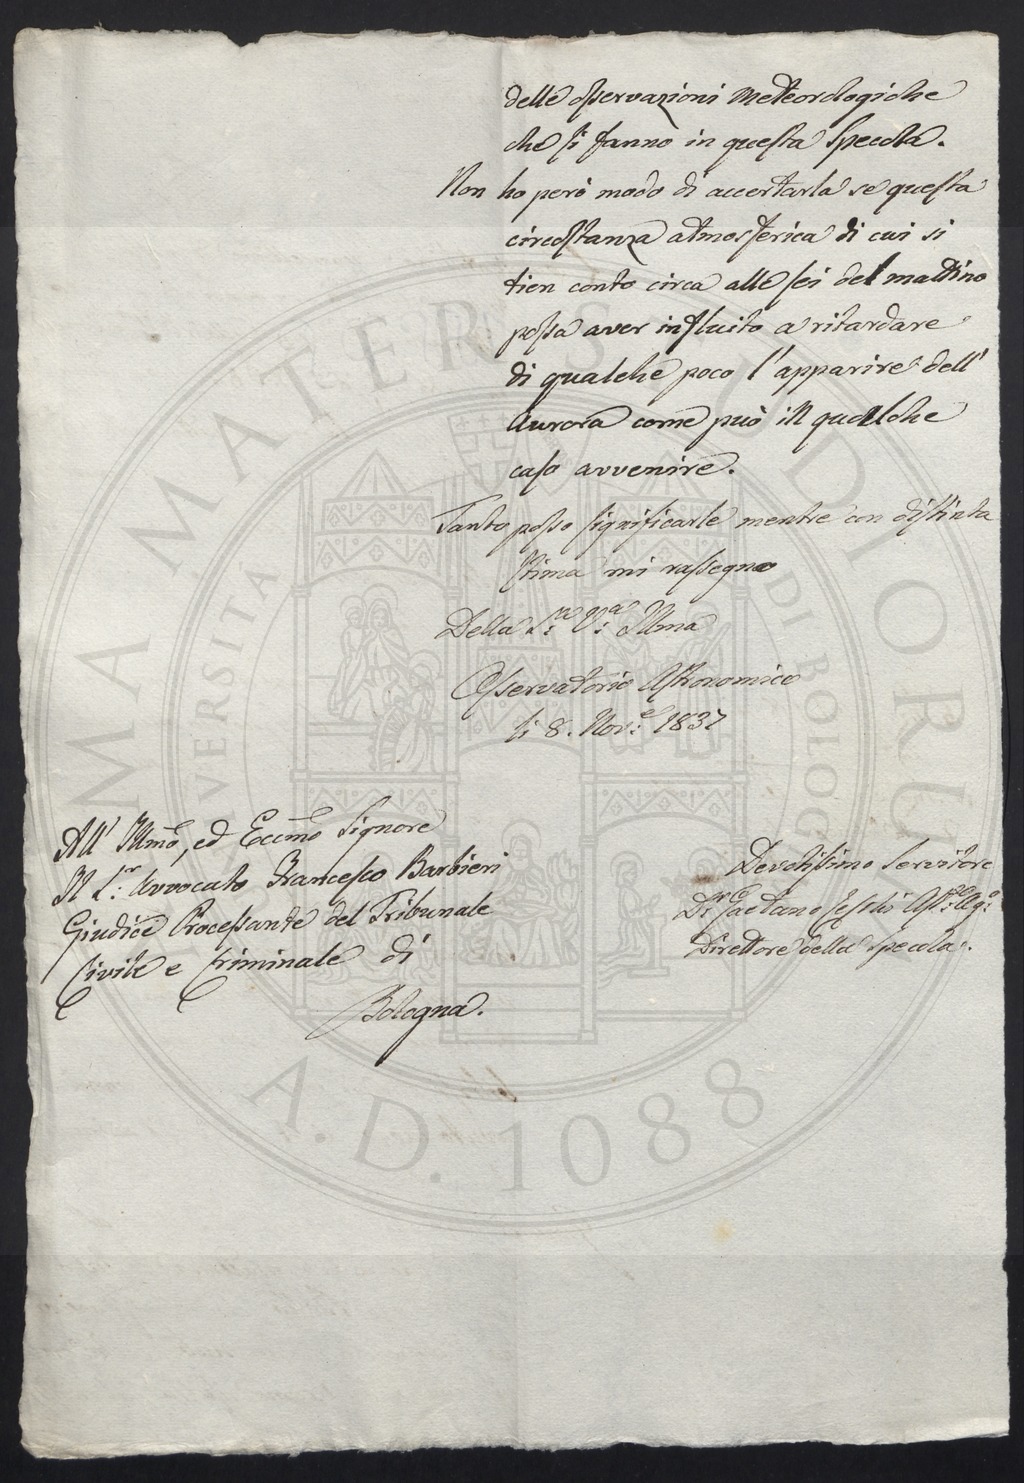 delle osservazioni Meteorologiche
che si fanno in questa Specola.
Non ho però modo di accertarla se questa
circostanza atmosferica di cui si
tien conto circa alle sei del mattino
possa aver influito a ritardare
di qualche poco l'apparire dell'
Aurora come può in qualche
caso avvenire.
Tanto posso significarle mentre con distinta
stima mi rassegno
Della S.ra V.a Illma
Osservatorio Astronomico
li 8. Nov.e 1837
All' Illmo, ed Eccmo Signore
Il S.r Avvocato Francesco Barbieri
Giudice Processante del Tribunale
Civile e Criminale di
Bologna.
Devotissimo Servitore
D.r Gaetano Ceschi
Direttore della Specola.
ALMA MATER STUDIORUM
UNIVERSITÀ DI BOLOGNA
A.D. 1088